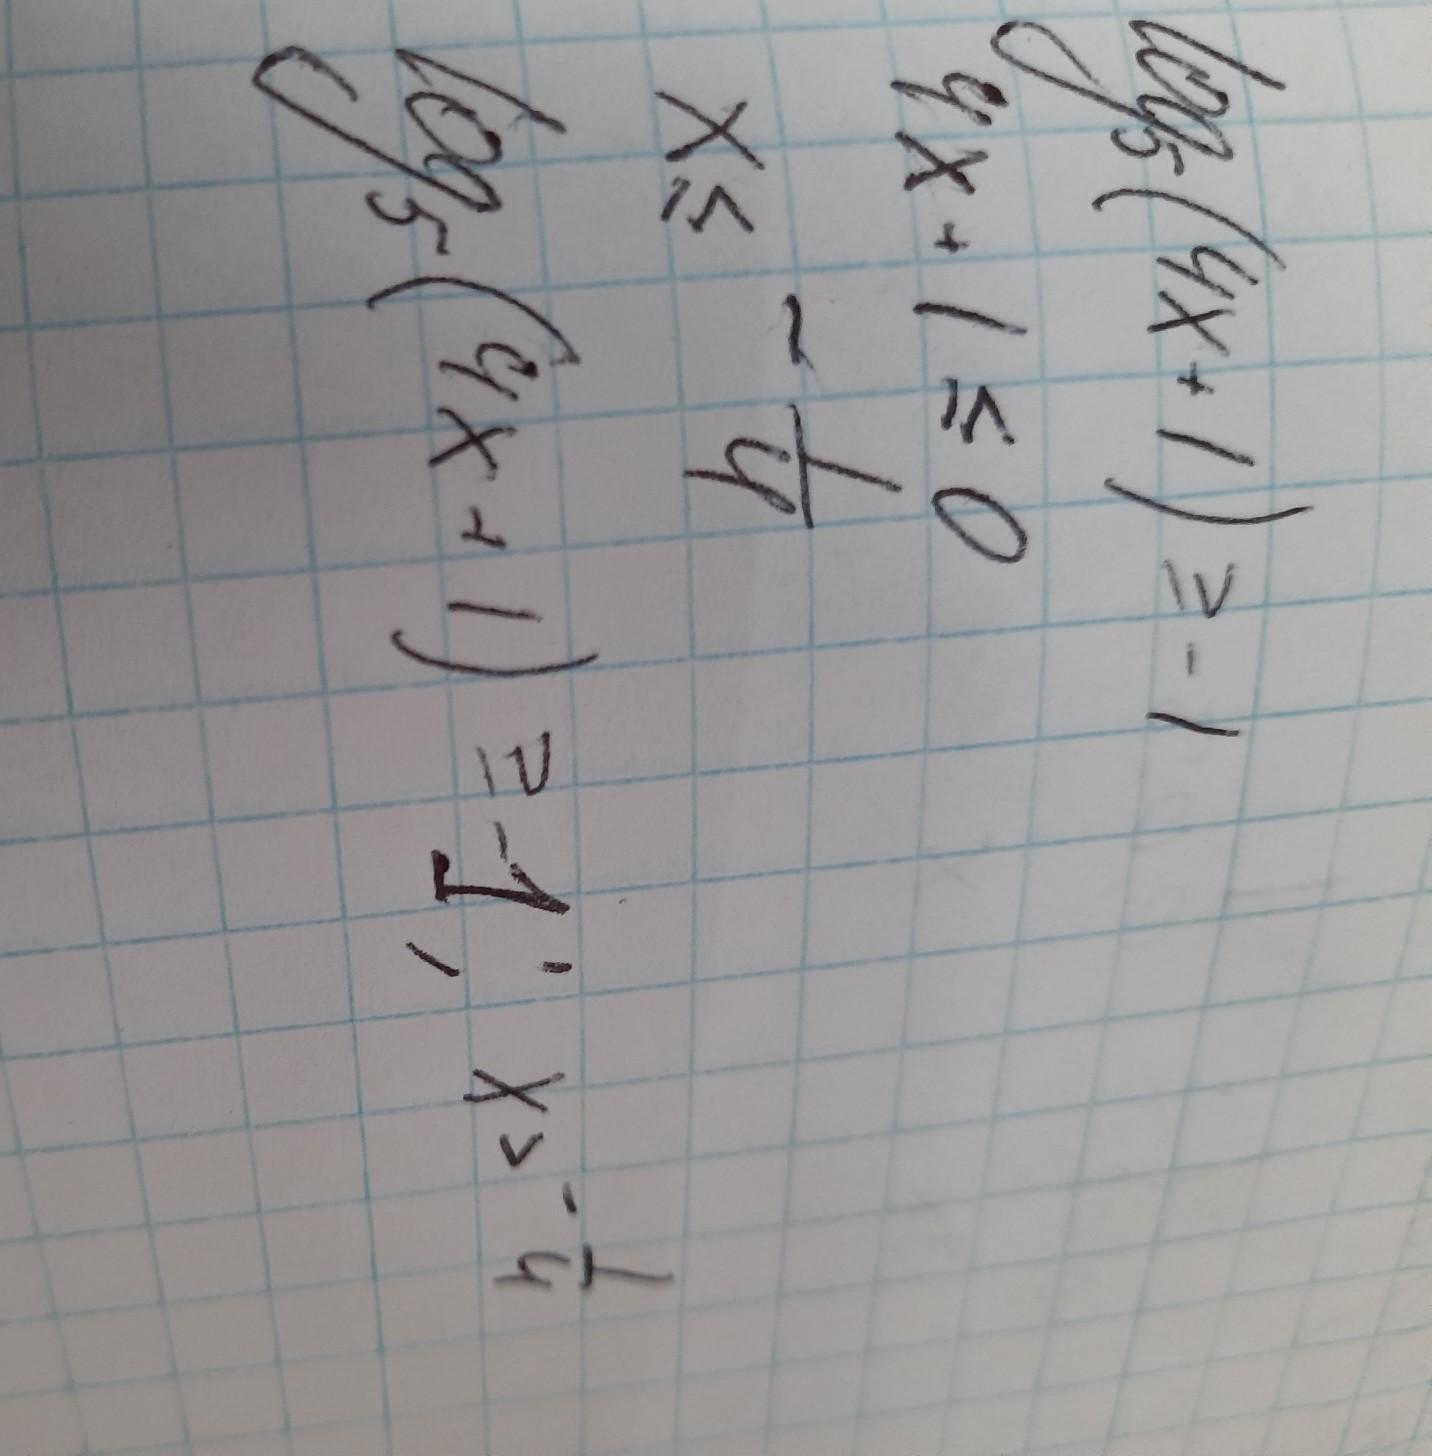 log₅(4x+1) ≥ -1
4x+1 ≤ 0
x ≤ -1/4
log₅(4x+1) ≥ -1; x > -1/4